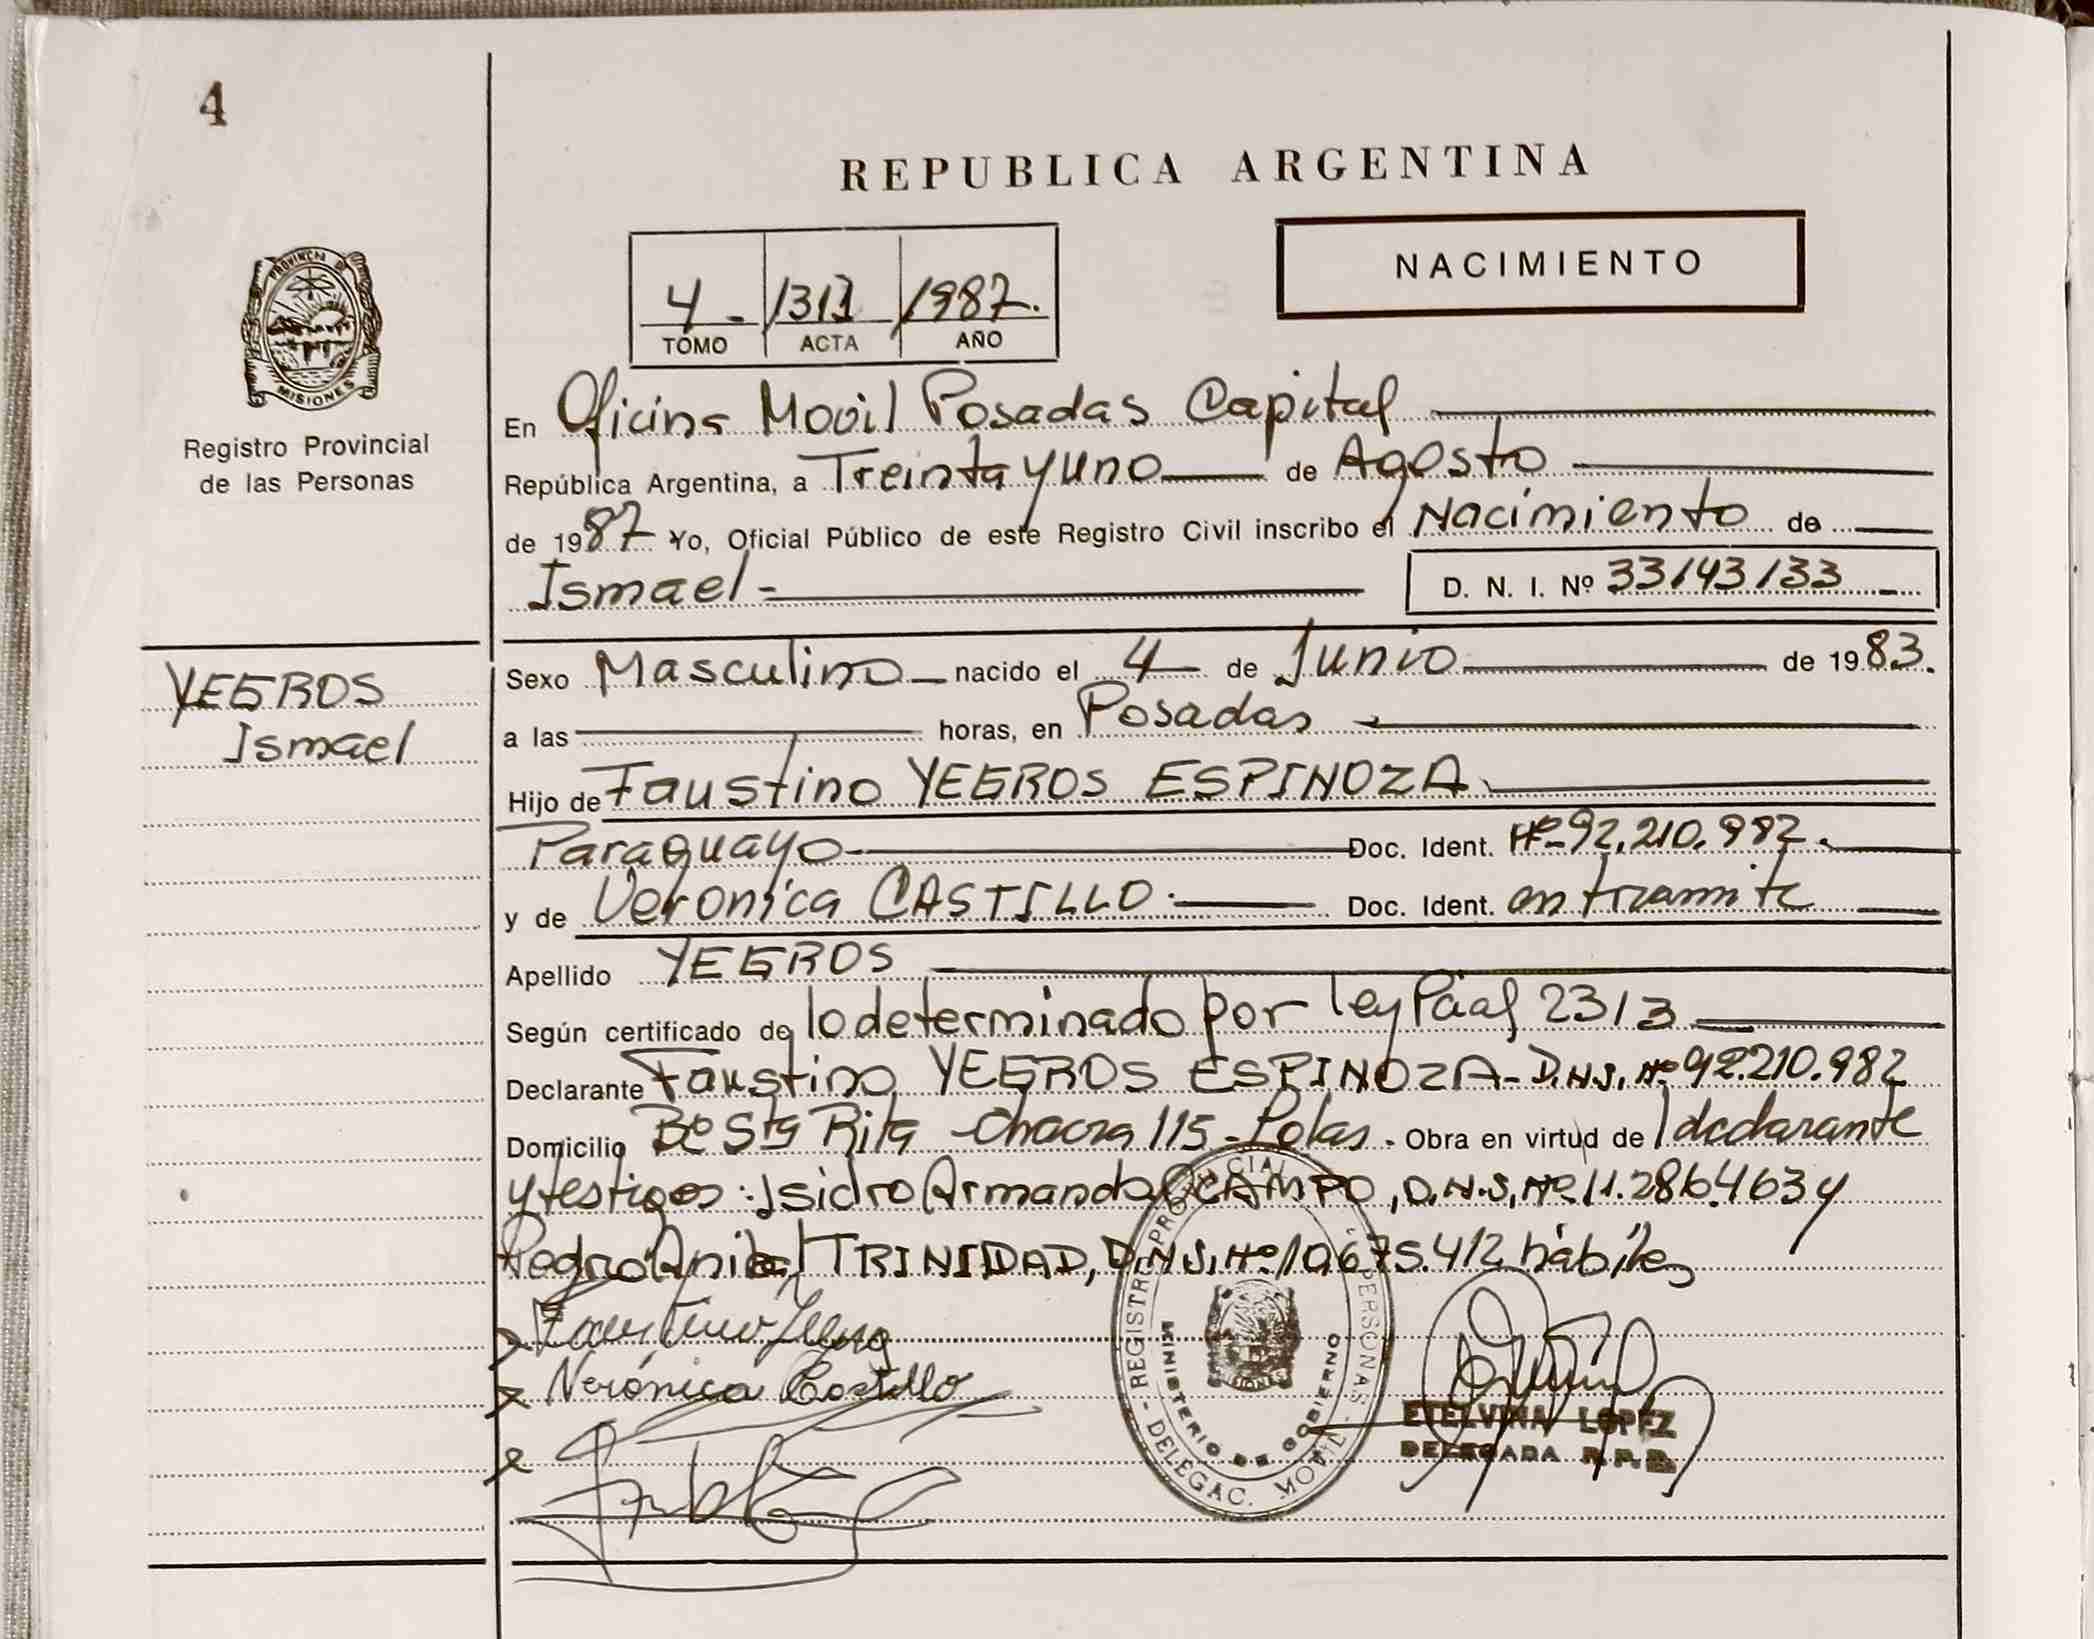 4
REPUBLICA ARGENTINA
NACIMIENTO
4 - 1311 1987.
TOMO ACTA AÑO
PROVINCIA DE MISIONES
Registro Provincial
de las Personas
En Oficina Movil Posadas Capital
República Argentina, a Treinta y uno de Agosto
de 1987 Yo, Oficial Público de este Registro Civil inscribo el Nacimiento de
Ismael - D. N. I. Nº 33143133
YEGROS
Ismael
Sexo Masculino nacido el 4 de Junio de 1983.
a las horas, en Posadas
Hijo de Faustino YEGROS ESPINOZA
Paraguayo Doc. Ident. Nº 92.210.982.
y de Veronica CASTILLO. Doc. Ident. en tramite
Apellido YEGROS
Según certificado de lo determinado por ley 2313
Declarante Faustino YEGROS ESPINOZA - D.N.I. Nº 92.210.982
Domicilio Bº Sta Rita - Chacra 115 - Obra en virtud de declarante
y testigos: Isidro Armando OCAMPO, D.N.I. Nº 11.286.463 y
Pedro Anibal TRINIDAD, D.N.I. Nº 10.675.412 hábiles
Faustino
Verónica Castillo
REGISTRO PROVINCIAL PERSONAS - DELEGAC. MOVIL -
MINISTERIO DE GOBIERNO
ETELVINA LOPEZ
DELEGADA R.P.P.